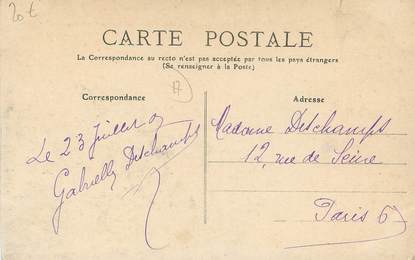 20€
CARTE POSTALE
La Correspondance au recto n'est pas acceptée par tous les pays étrangers
(Se renseigner à la Poste)
Correspondance
Adresse
Le 23 Juillet
Gabrielle Deschamps
Madame Deschamps
12, rue de Seine
Paris 6